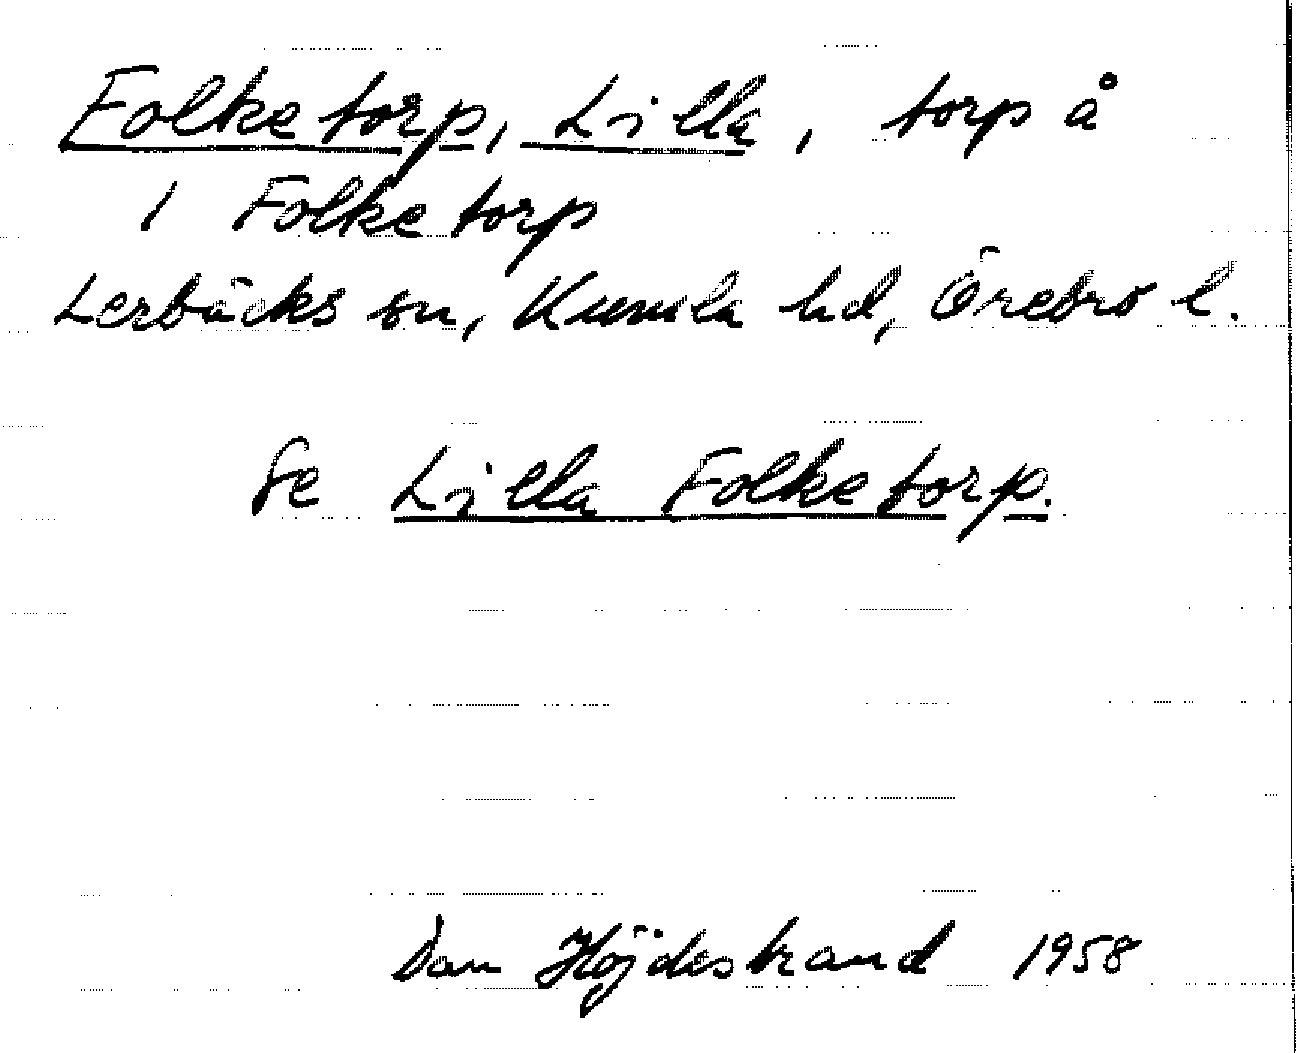 Folketorp, Lilla, torp å
1 Folketorp
Lerbäcks sn, Kumla hd, Örebro l.
Se Lilla Folketorp.
Dan Höjdestrand 1958